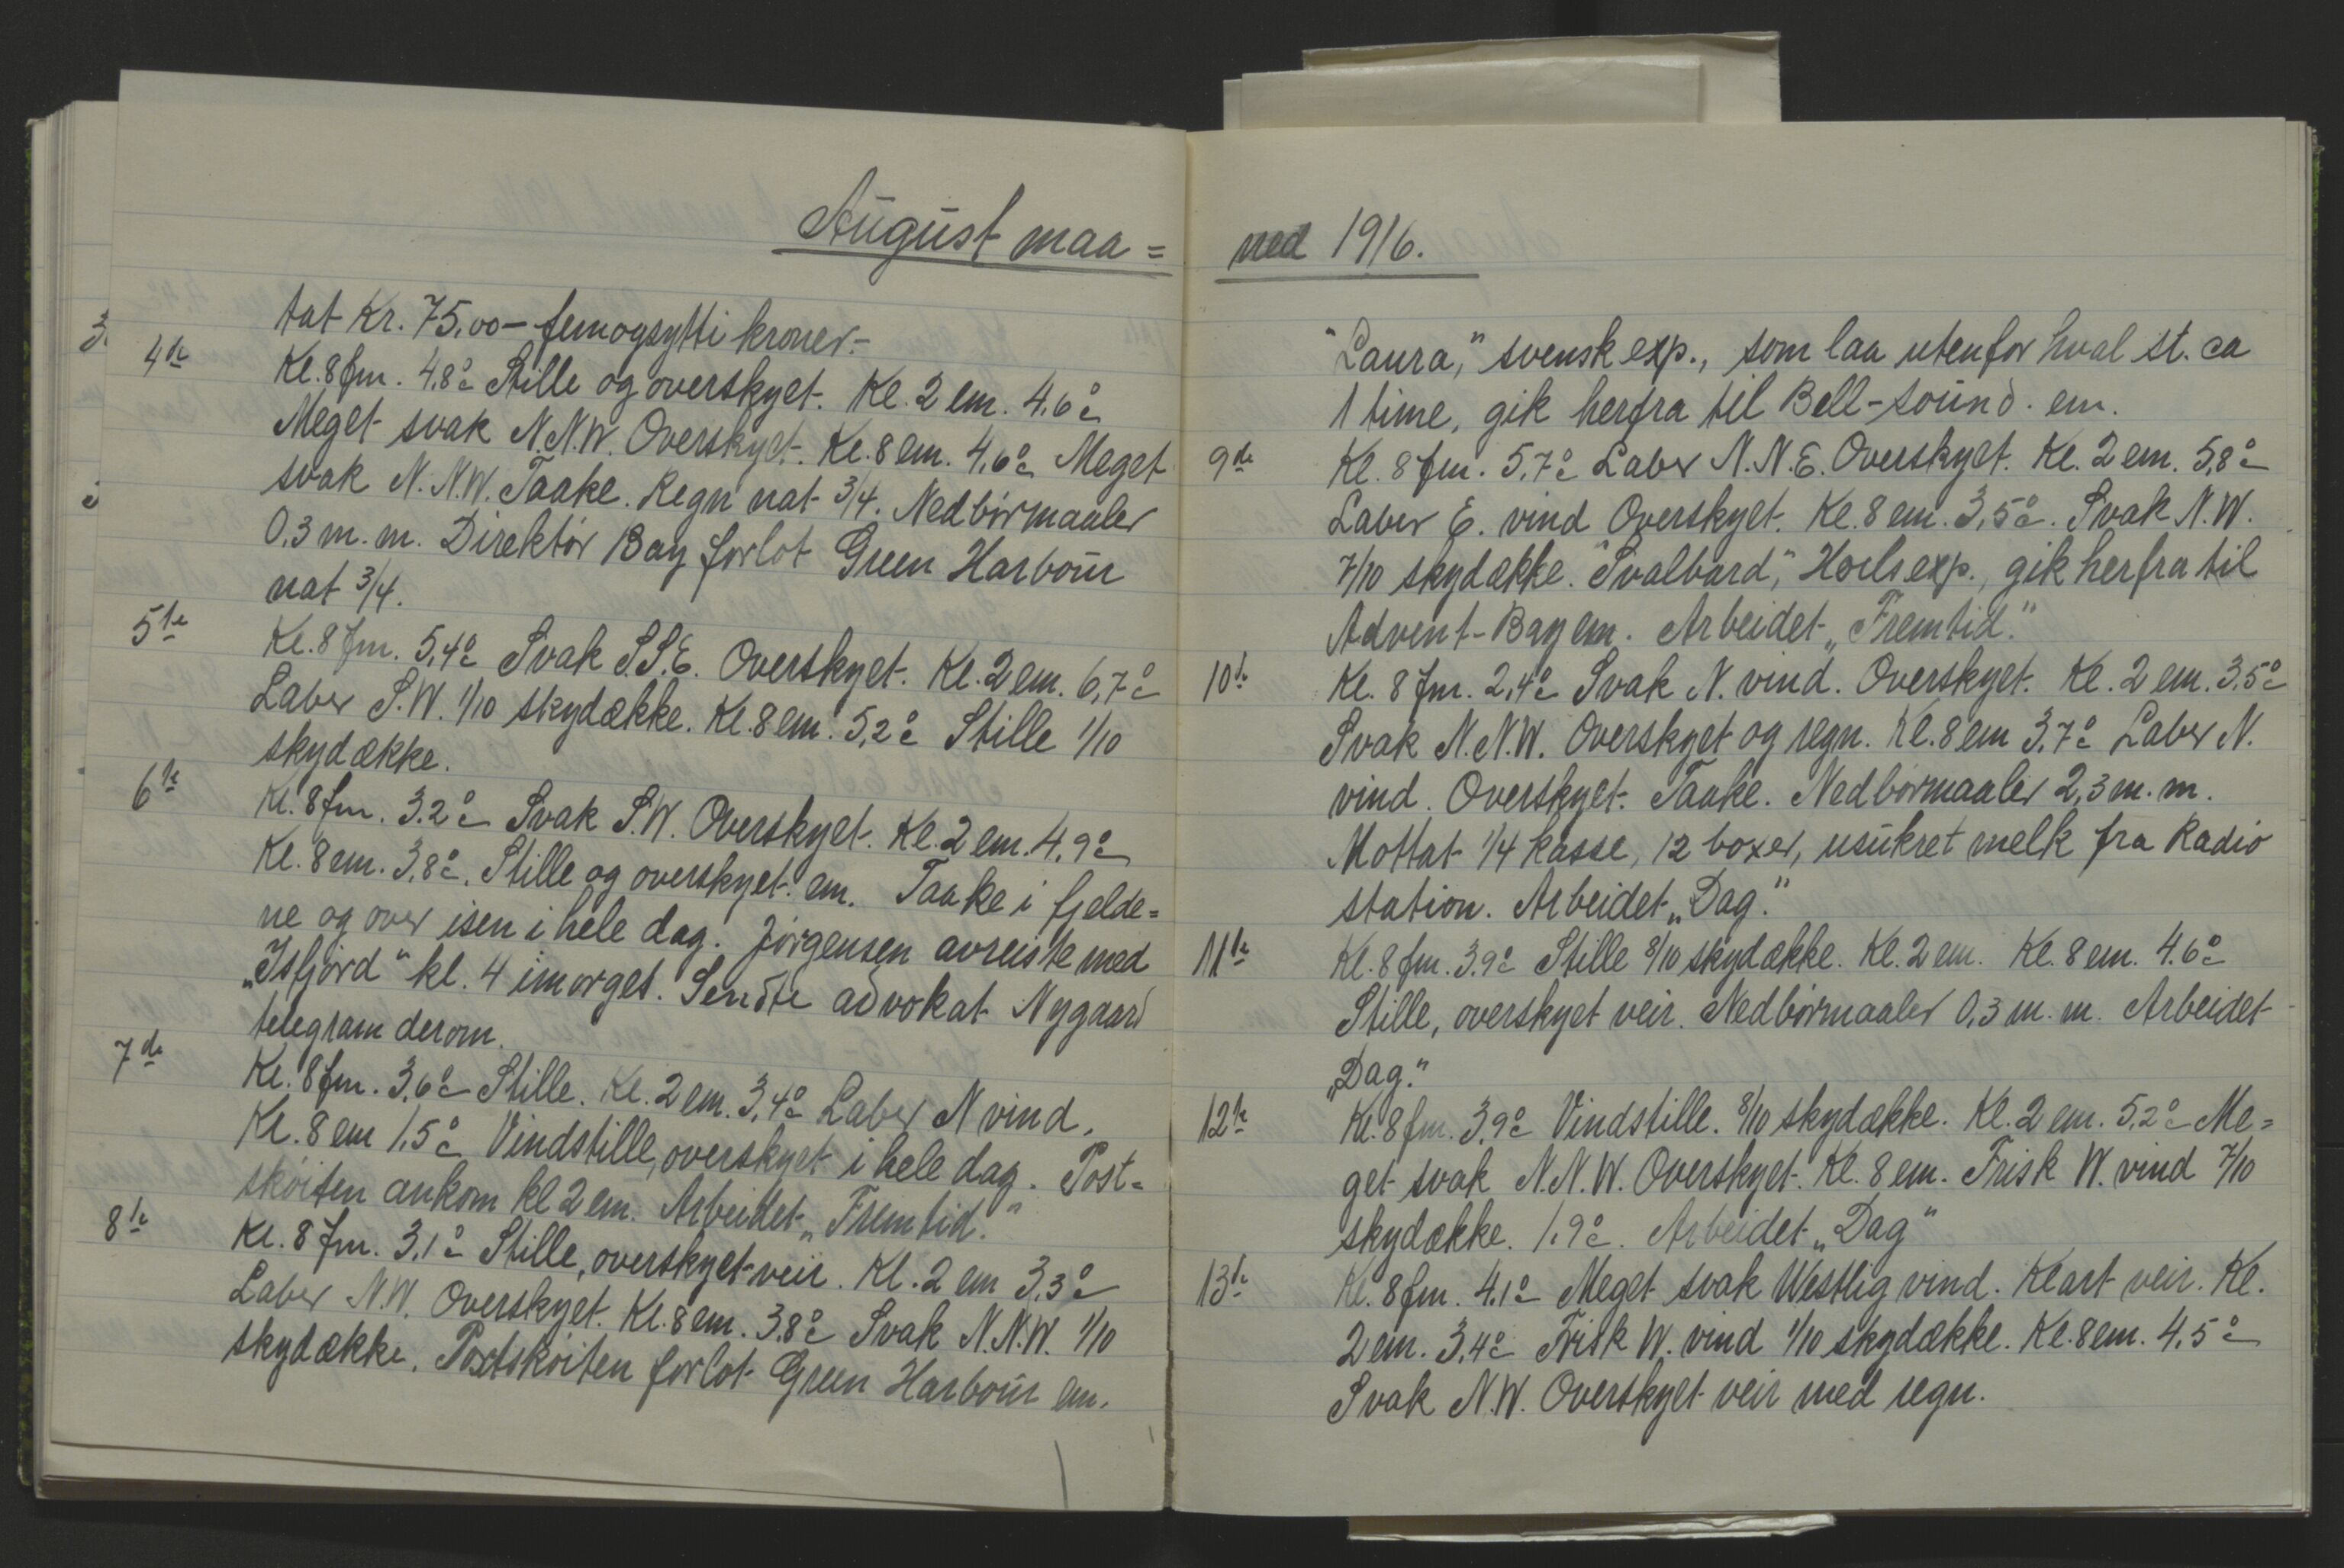 August maa=
tat Kr. 75,00 – femogsytti kroner.–
4de Kl. 8 fm. 4,8° c Stille og overskyet. Kl. 2 em. 4,6° c
Meget svak N.N.W. Overskyet. Kl. 8 em. 4,6° c Meget
svak N.N.W. Taake. Regn nat 3/4. Nedbørmaaler
0,3 m.m. Direktør Bay forlot Green Harbour
nat 3/4.
5te Kl. 8 fm. 5,4° c Svak S.S.E. Overskyet. Kl. 2 em. 6,7° c
Laber S.W. 1/10 skydække. Kl. 8 em. 5,2° c Stille 1/10
skydække.
6te Kl. 8 fm. 3.2° c Svak S.W. Overskyet. Kl. 2 em. 4,9° c
Kl. 8 em. 3,8° c. Stille og overskyet em. Taake i fjelde=
ne og over isen i hele dag. Jørgensen avreiste med
„Isfjord“ kl. 4 imorges. Sendte advokat Nygaard
telegram derom.
7de Kl. 8 fm. 3,6° c Stille. Kl. 2 em. 3,4° c Laber N vind.
Kl. 8 em 1,5° c Vindstille, overskyet i hele dag. Post=
skøiten ankom kl 2 em. Arbeidet „Fremtid.“
8de Kl. 8 fm. 3,1° c Stille, overskyet veir. Kl. 2 em 3,3° c
Laber N.W. Overskyet. Kl. 8 em. 3,8° c Svak N.N.W. 1/10
skydække. Postskøiten forlot Green Harbour em.
ned 1916.
"Laura," svensk exp., som laa utenfor hval st. ca
1 time, gik herfra til Bell-sound. em.
9de Kl. 8 fm. 5,7° c Laber N.N.E. Overskyet. Kl. 2 em. 5,8° c
Laber E. vind Overskyet. Kl. 8 em. 3,5° c. Svak N.W.
7/10 skydække. "Svalbard," Hoels exp., gik herfra til
Advent-Bay em. Arbeidet „Fremtid.“
10de Kl. 8 fm. 2,4° c Svak N. vind. Overskyet. Kl. 2 em. 3,5° c
Svak N.N.W. Overskyet og regn. Kl. 8 em 3,7° c Laber N.
vind. Overskyet. Taake. Nedbørmaaler 2,3 m.m.
Mottat 1/4 kasse, 12 boxer, usukret melk fra Radio
station. Arbeidet „Dag.“
11te Kl. 8 fm. 3.9° c Stille 8/10 skydække. Kl. 2 em. Kl. 8 em. 4.6° c
Stille, overskyet veir. Nedbørmaaler 0,3 m.m. Arbeidet
„Dag.“
12te Kl. 8 fm. 3,9° c Vindstille. 8/10 skydække. Kl. 2 em. 5,2° c Me=
get svak N.N.W. Overskyet. Kl. 8 em. Frisk W. vind 7/10
skydække. 1,9° c. Arbeidet „Dag“
13de Kl. 8 fm. 4.1° c Meget svak Westlig vind. Klart veir. Kl.
2 em. 3,4° c Frisk W. vind 1/10 skydække. Kl. 8 em. 4,5° c
Svak N.W. Overskyet veir med regn.